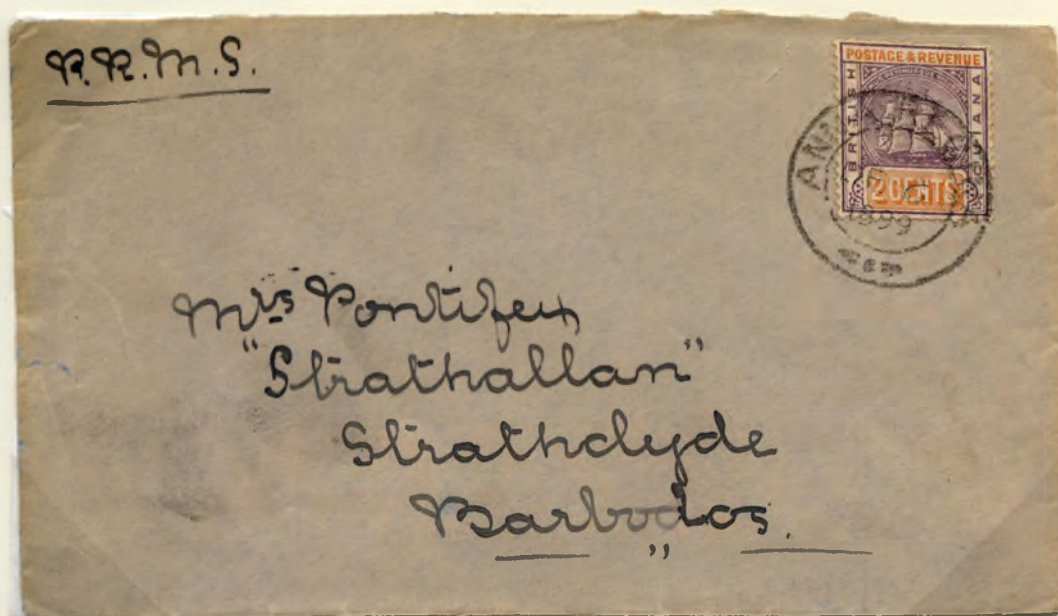 R.R.M.S.
POSTAGE & REVENUE
BRITISH
GUIANA
2 CENTS
1899
Mrs Pontifex
"Strathallan"
Strathclyde
Barbados.